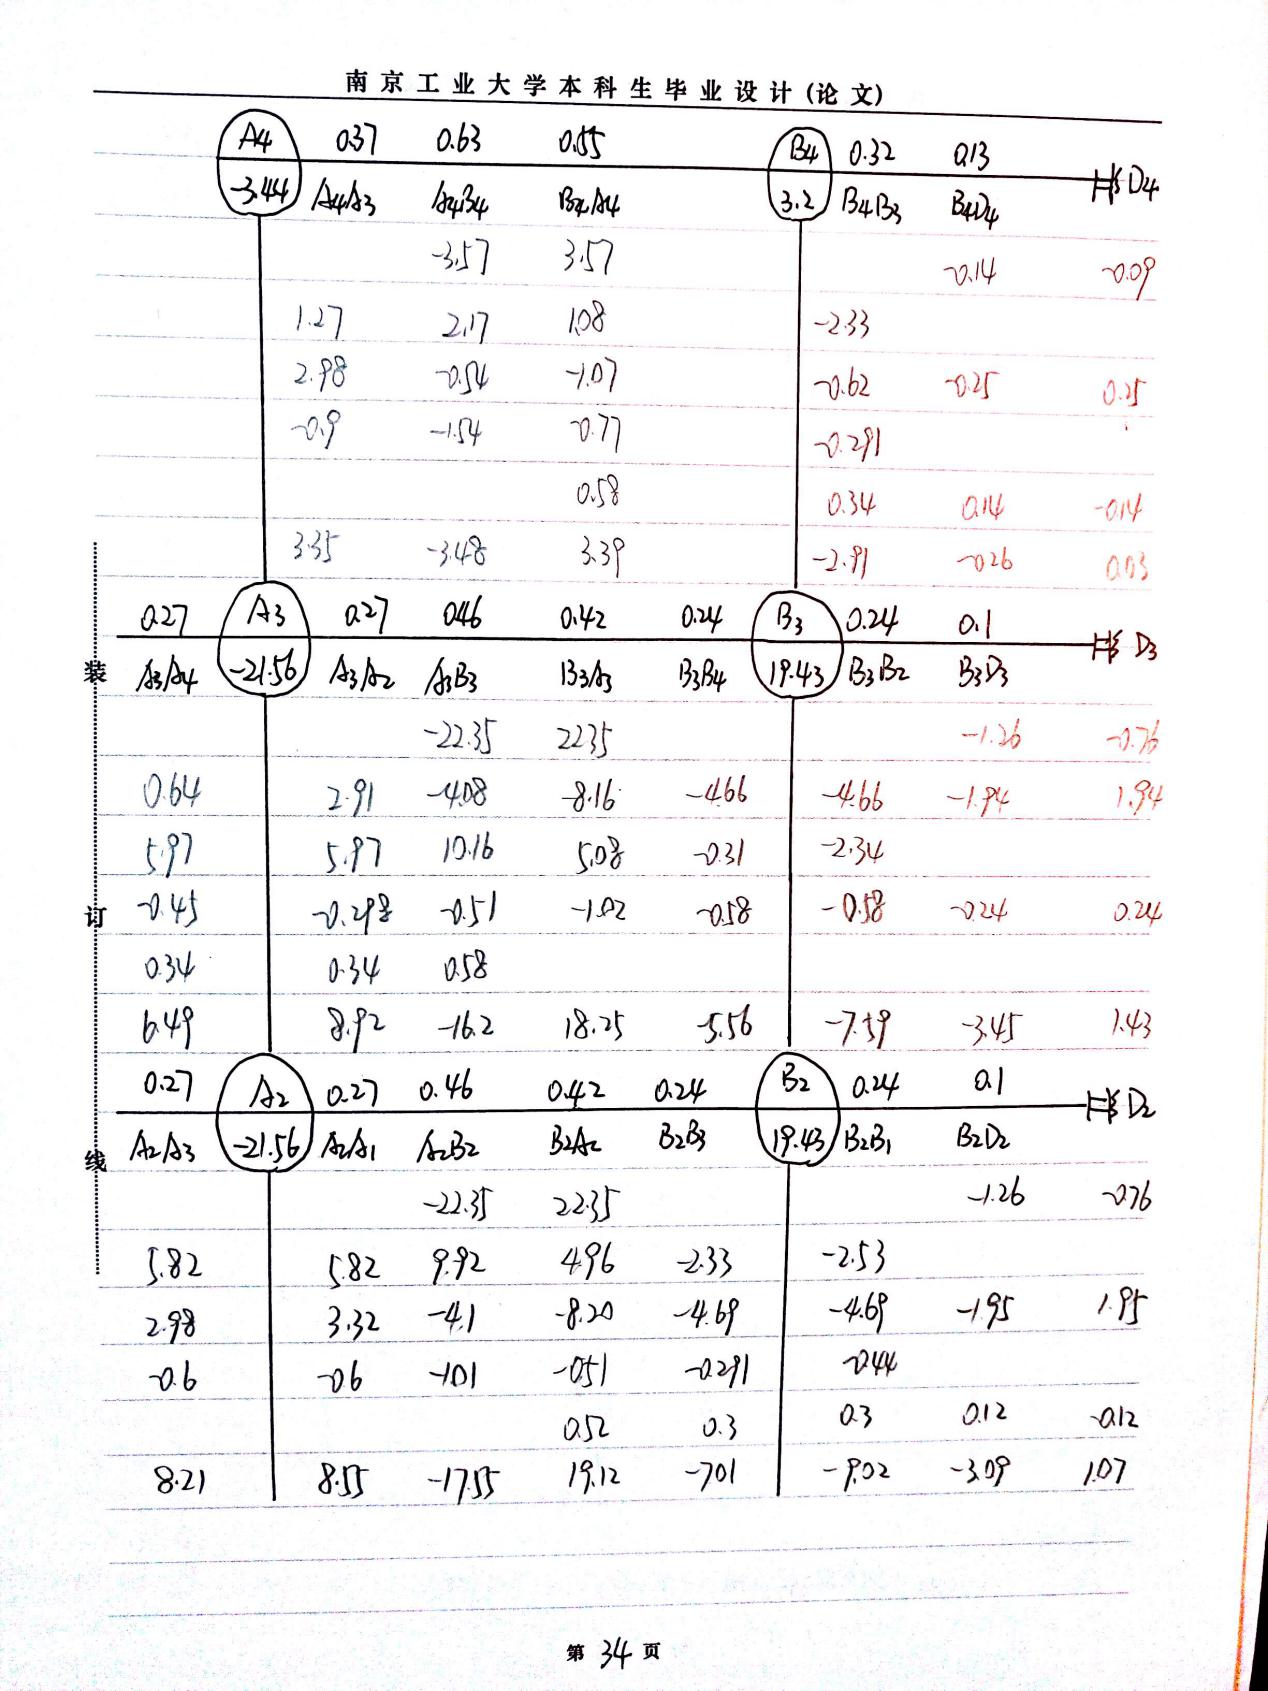 南京工业大学本科生毕业设计(论文)
A4 0.37 0.63 0.55 B4 0.32 0.13
-3.44 A4A3 A4B4 B4A4 3.2 B4B3 B4D4 D4
-3.57 3.57 -0.14 -0.09
1.27 2.17 1.08 -2.33
2.98 -0.54 -1.07 -0.62 -0.25 0.25
-0.9 -1.54 -0.77 -0.291
0.58 0.34 0.14 -0.14
3.35 -3.48 3.39 -2.91 -0.26 0.03
0.27 A3 0.27 0.46 0.42 0.24 B3 0.24 0.1 D3
A3A4 -21.56 A3A2 A3B3 B3A3 B3B4 19.43 B3B2 B3D3
-22.35 22.35 -1.26 -0.76
0.64 2.91 -4.08 -8.16 -4.66 -4.66 -1.94 1.94
5.97 5.97 10.16 5.08 -0.31 -2.34
-0.45 -0.298 -0.51 -1.02 -0.58 -0.58 -0.24 0.24
0.34 0.34 0.58
6.49 8.92 -16.2 18.25 -5.56 -7.59 -3.45 1.43
0.27 A2 0.27 0.46 0.42 0.24 B2 0.24 0.1 D2
A2A3 -21.56 A2A1 A2B2 B2A2 B2B3 19.43 B2B1 B2D2
-22.35 22.35 -1.26 -0.76
5.82 5.82 9.92 4.96 -2.33 -2.53
2.98 3.32 -4.1 -8.20 -4.69 -4.69 -1.95 1.95
-0.6 -0.6 -1.01 -0.51 -0.291 -0.44
0.52 0.3 0.3 0.12 -0.12
8.21 8.55 -17.55 19.12 -7.01 -9.02 -3.09 1.07
装
订
线
第 34 页